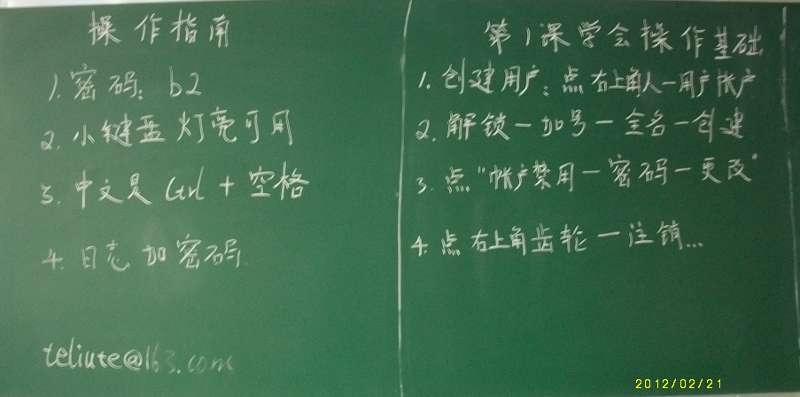 操作指南
1. 密码: b2
2. 小键盘灯亮可用
3. 中文是 Ctrl + 空格
4. 日志加密码
teliute@163.com
第1课学会操作基础
1. 创建用户: 点右上角人一用户帐户
2. 解锁一加号一全名一创建
3. 点"帐户禁用一密码一更改"
4. 点右上角齿轮一注销...
2012/02/21